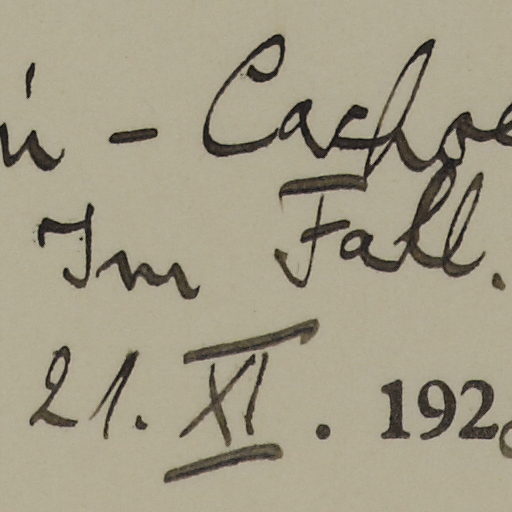 - Cachoe
Im Fall.
21. XI. 192